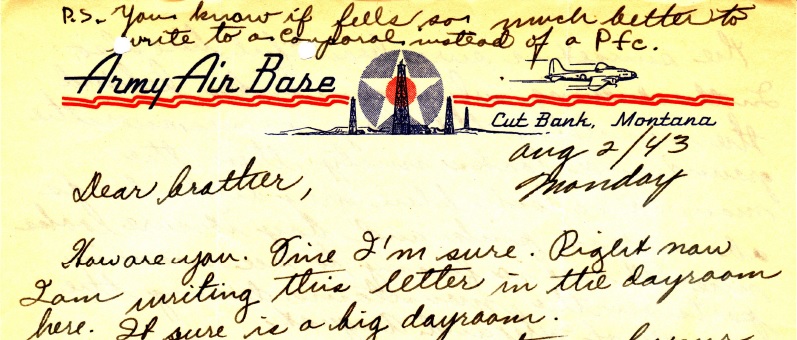 P.S. You know if fells so much better to
write to a corporal instead of a Pfc.
Army Air Base
Cut Bank, Montana
Aug 2/43
Monday
Dear brother,
How are you. Fine I'm sure. Right now
I am writing this letter in the dayroom
here. It sure is a big dayroom.